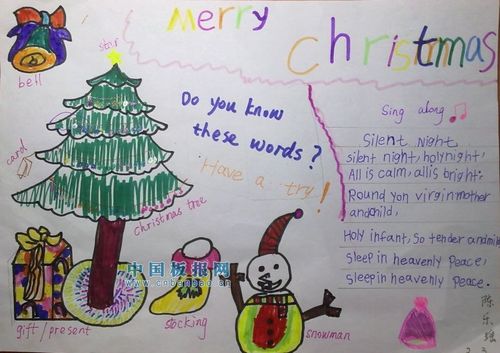 Merry
Christmas
bell
star
Do you know
these words?
Have a try!
card
christmas tree
gift/present
stocking
snowman
Sing along
Silent Night
silent night, holy night,
All is calm, all is bright.
Round yon virgin mother
and child,
Holy infant, so tender and mild
Sleep in heavenly peace,
Sleep in heavenly peace.
中国板报网
www.cnbanbao.cn
陈乐